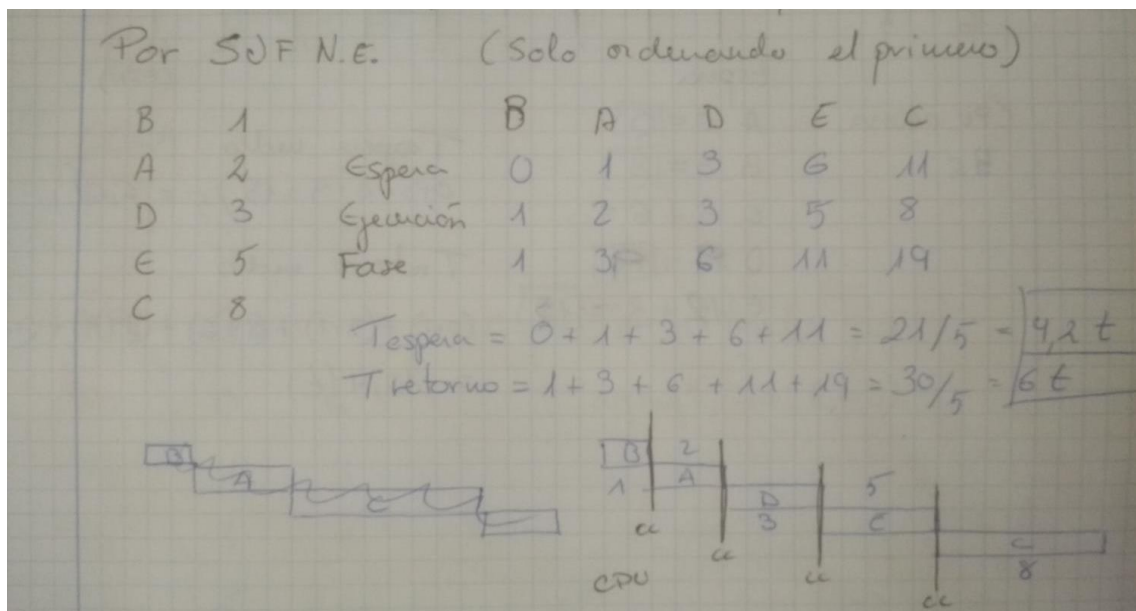 Por SJF N.E. (Solo ordenando el primero)
B 1 B A D E C
A 2 Espera 0 1 3 6 11
D 3 Ejecución 1 2 3 5 8
E 5 Fase 1 3 6 11 19
C 8
Tespera = 0 + 1 + 3 + 6 + 11 = 21/5 = 4,2 t
T retorno = 1 + 3 + 6 + 11 + 19 = 30/5 = 6 t
B A C
B 2 5
1 A D E C
3 8
cc cc cc cc
CPU